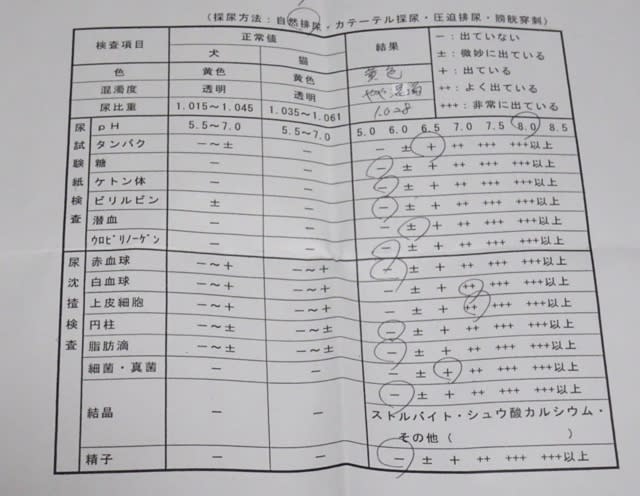 (採尿方法：自然排尿・カテーテル採尿・圧迫排尿・膀胱穿刺)
検査項目 正常値 結果 －：出ていない
犬 猫 ±：微妙に出ている
色 黄色 黄色 黄色 ＋：出ている
混濁度 透明 透明 やや混濁 ++：よく出ている
尿比重 1.015～1.045 1.035～1.061 1.028 +++：非常に出ている
尿試験紙検査
pH 5.5～7.0 5.5～7.0 5.0 6.0 6.5 7.0 7.5 8.0 8.5
タンパク －～± － － ± ＋ ++ +++ +++以上
糖 － － － ± ＋ ++ +++ +++以上
ケトン体 － － － ± ＋ ++ +++ +++以上
ビリルビン ± － － ± ＋ ++ +++ +++以上
潜血 － － － ± ＋ ++ +++ +++以上
ウロビリノーゲン － － － ± ＋ ++ +++ +++以上
尿沈渣検査
赤血球 －～＋ －～＋ － ± ＋ ++ +++ +++以上
白血球 －～＋ －～＋ － ± ＋ ++ +++ +++以上
上皮細胞 －～＋ －～＋ － ± ＋ ++ +++ +++以上
円柱 －～± －～± － ± ＋ ++ +++ +++以上
脂肪滴 －～± －～± － ± ＋ ++ +++ +++以上
細菌・真菌 － － － ± ＋ ++ +++ +++以上
結晶 － － － ± ＋ ++ +++ +++以上
ストルバイト・シュウ酸カルシウム・
その他（ ）
精子 － － － ± ＋ ++ +++ +++以上